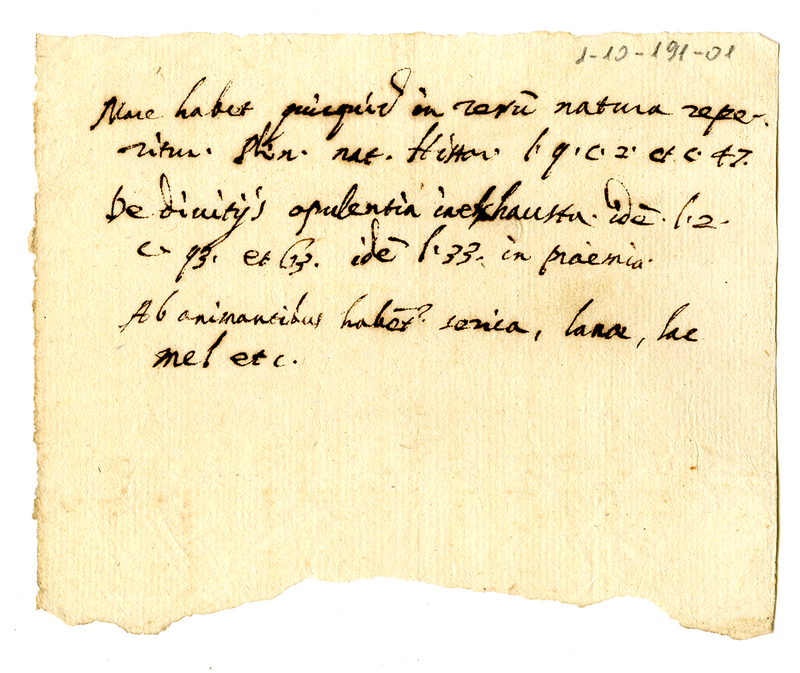 1-10-191-01
Mare habet quicquid in rerū natura repe-
ritur. Plin. nat. Histor. l. 9. c. 2. et c. 47.
De divitijs opulentia inexhausta. idē. l. 2.
c. 93. et 63. idē l. 33. in praemia.
Ab animantibus habēt? serica, lanae, lac
mel etc.